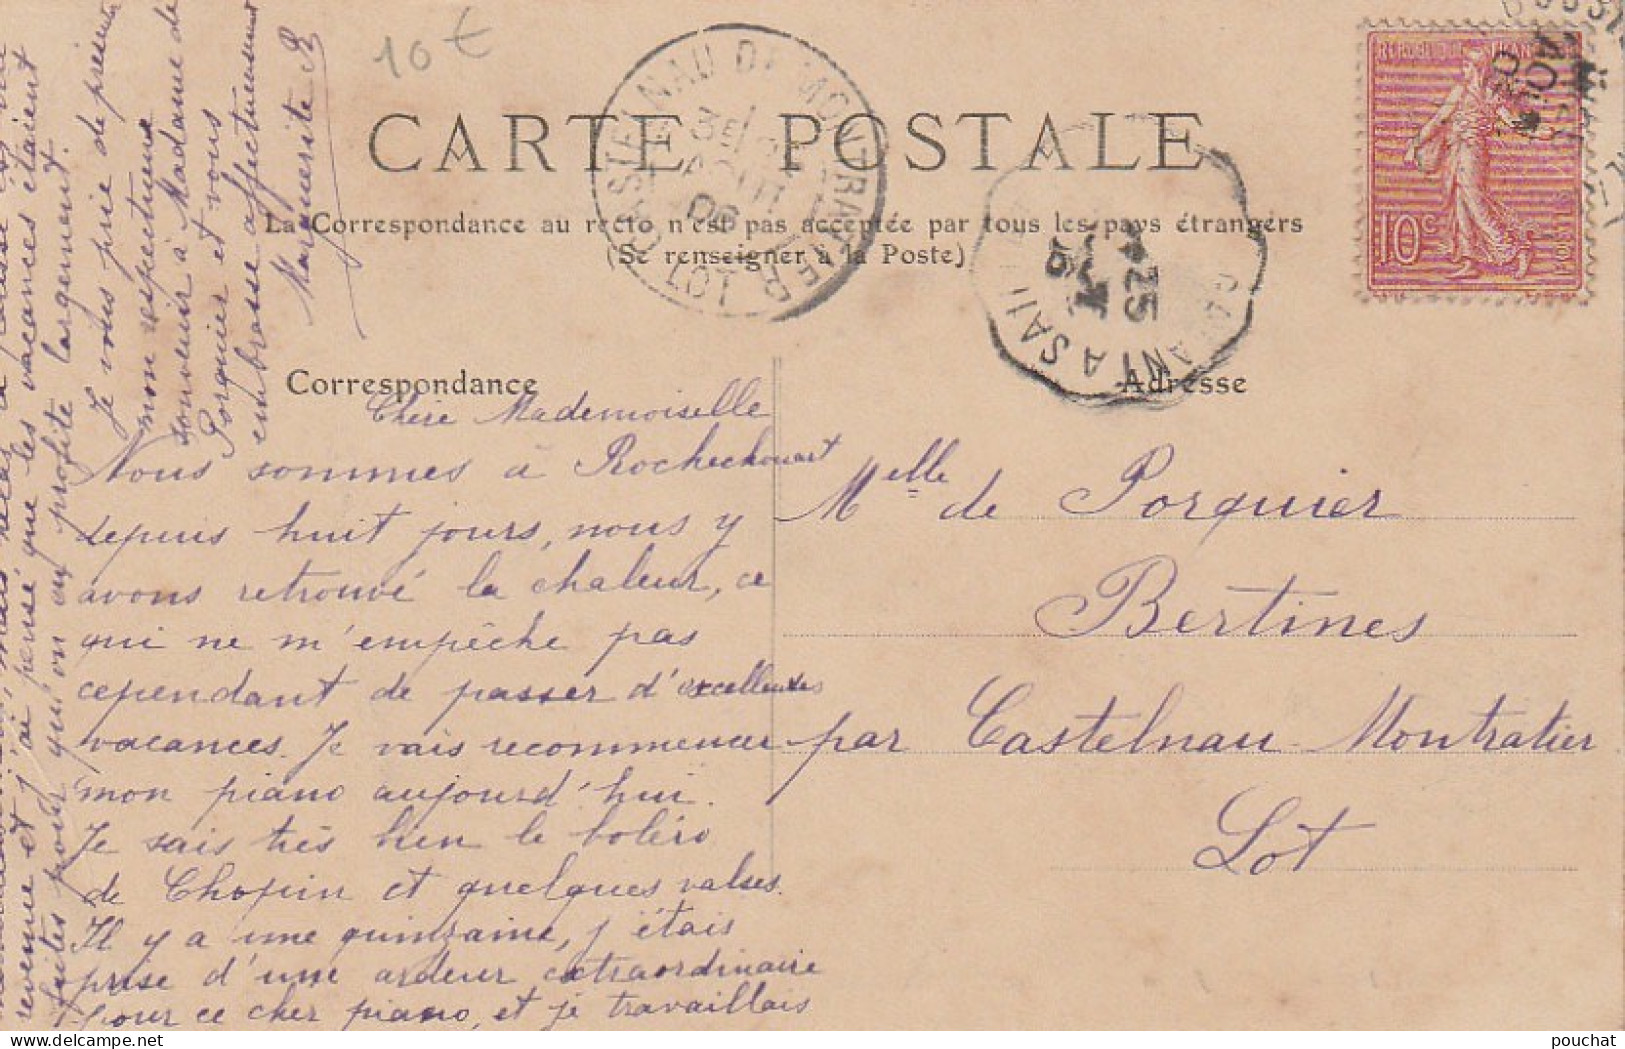 10 €
CARTE POSTALE
La Correspondance au recto n'est pas acceptée par tous les pays étrangers
(Se renseigner à la Poste)
Correspondance
Adresse
CASTELNAU DE MONTRATIER
LOT
3E
AOUT
06
A SAI
25
REPUBLIQUE FRANÇAISE
10c
POSTES
Chère Mademoiselle
Nous sommes à Rochechouart
depuis huit jours, nous y
avons retrouvé la chaleur, ce
qui ne m'empêche pas
cependant de passer d'excellentes
vacances. Je vais recommencer
mon piano aujourd'hui.
Je sais très bien le boléro
de Chopin et quelques valses.
Il y a une quinzaine, j'étais
prise d'une ardeur extraordinaire
pour ce cher piano, et je travaillais
revenue et j'ai pensé que les vacances étaient
faites pour qu'on en profite largement.
Je vous prie de présenter
mon respectueux
souvenir à Madame de
Porquier et vous
embrasse affectueusement
Marguerite R
Melle de Porquier
Bertines
par Castelnau-Montratier
Lot
pouchat